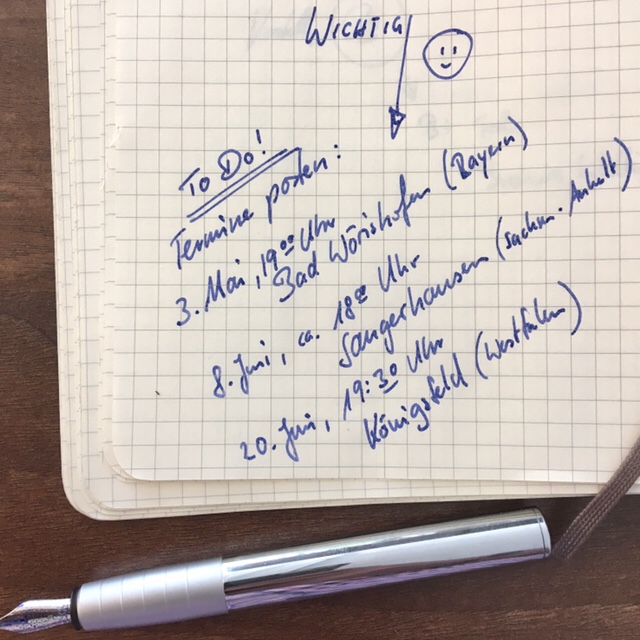 WICHTIG
To Do!
Termine posten:
3. Mai, 19⁰⁰ Uhr
Bad Wörishofen (Bayern)
8. Juni, ca. 18⁰⁰ Uhr
Sangerhausen (Sachsen-Anhalt)
20. Juni, 19:30 Uhr
Königsfeld (Westfalen)